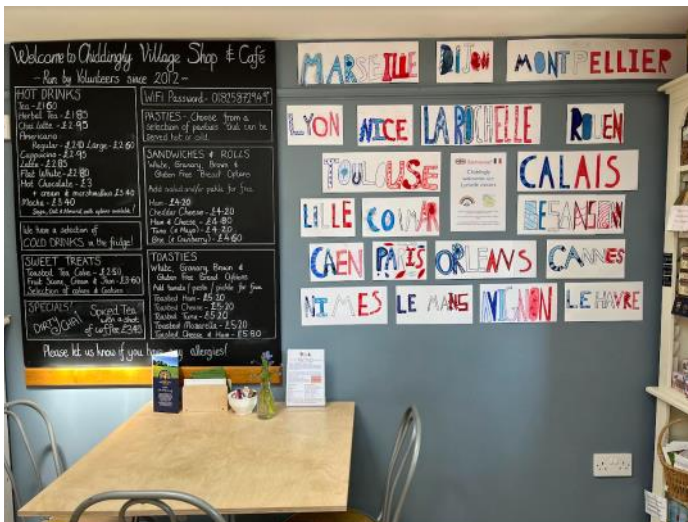 Welcome to Chiddingly Village Shop & Café
- Run by Volunteers since 2012 -
HOT DRINKS
Tea - £1.60
Herbal Tea - £1.85
Chai Latte - £2.95
Americano
Regular - £2.40 Large - £2.60
Cappuccino - £2.95
Latte - £2.85
Flat White - £2.80
Hot Chocolate - £3
+ cream & marshmallow £3.40
Mocha - £3.40
Soya, Oat & Almond milk options available!
We have a selection of
COLD DRINKS in the fridge!
SWEET TREATS
Toasted Tea Cake - £2.50
Fruit Scone, Cream & Jam - £3.60
Selection of cakes & Cookies
SPECIALS
DIRTY CHAI
Spiced Tea
with a shot
of coffee £3.45
WIFI Password - 01825872949
PASTIES - Choose from a
selection of pasties that can be
served hot or cold.
SANDWICHES & ROLLS
White, Granary, Brown &
Gluten Free Bread Options
Add salad and/or pickle for free
Ham - £4.20
Cheddar Cheese - £4.20
Ham & Cheese - £4.80
Tuna (& Mayo) - £4.20
Brie (& Cranberry) - £4.60
TOASTIES
White, Granary, Brown &
Gluten Free Bread Options
Add tomato / pesto / pickle for free
Toasted Ham - £5.20
Toasted Cheese - £5.20
Toasted Tuna - £5.20
Toasted Mozzarella - £5.20
Toasted Cheese & Ham - £5.80
Please let us know if you have any allergies!
MARSEILLE DIJON MONTPELLIER
LYON NICE LA ROCHELLE ROUEN
TOULOUSE CALAIS
Chiddingly
LILLE COLMAR BESANSON
CAEN PARIS ORLEANS CANNES
NIMES LE MANS AVIGNON LE HAVRE